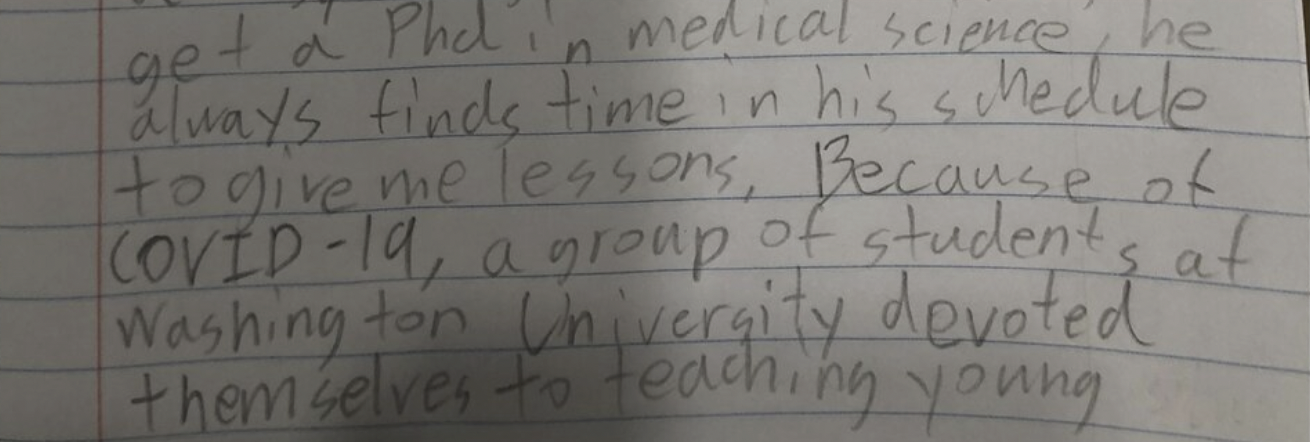 get a Phd in medical science, he
always finds time in his schedule
to give me lessons. Because of
COVID-19, a group of students at
Washington University devoted
themselves to teaching young